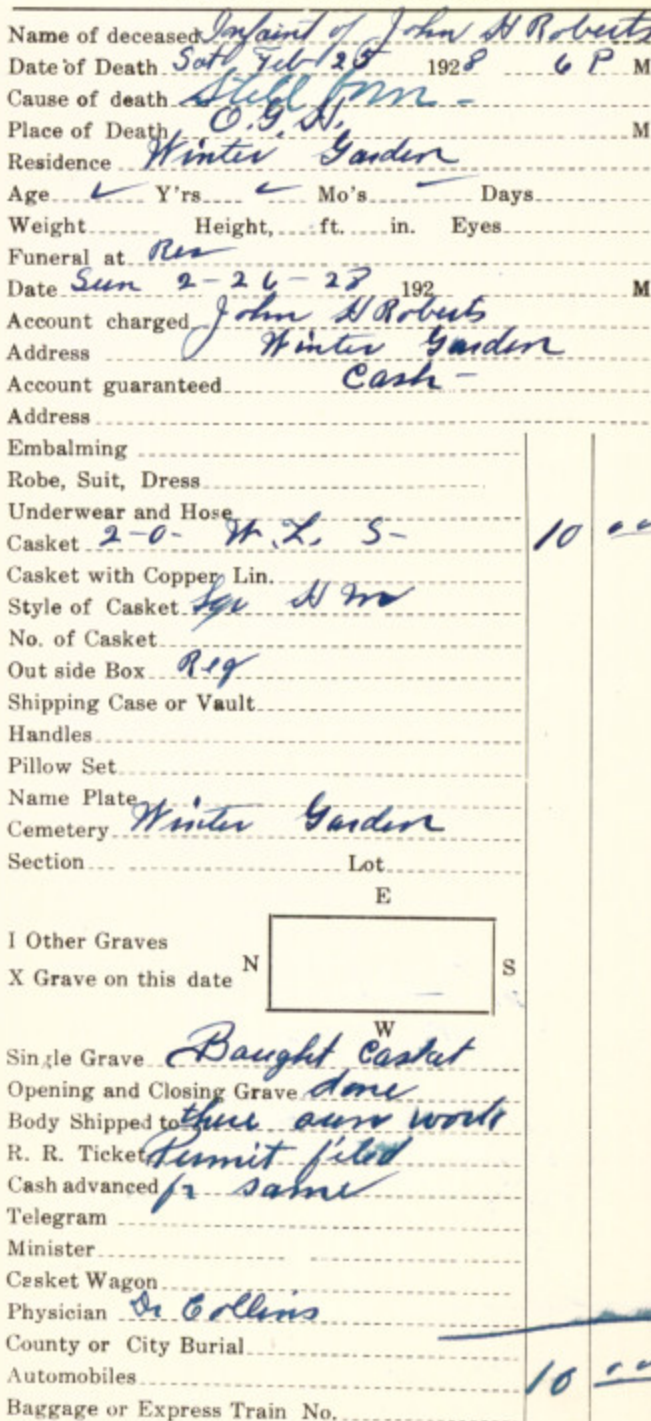 Name of deceased Infaint of John H Roberts
Date of Death Sat Feb 25 1928 6 P M
Cause of death Still born -
Place of Death O.G.H. M
Residence Winter Garden
Age ✓ Y'rs ✓ Mo's – Days
Weight Height, ft. in. Eyes
Funeral at Res
Date Sun 2-26-28 192 M
Account charged John H Roberts
Address Winter Garden
Account guaranteed Cash -
Address
Embalming
Robe, Suit, Dress
Underwear and Hose
Casket 2-0- W. L. S- 10 00
Casket with Copper Lin.
Style of Casket Sqr H M
No. of Casket
Out side Box Reg
Shipping Case or Vault
Handles
Pillow Set
Name Plate
Cemetery Winter Garden
Section Lot
E
I Other Graves
X Grave on this date N S
W
Single Grave Baught Caskat
Opening and Closing Grave done
Body Shipped to there own work
R. R. Ticket Permit filed
Cash advanced fr same
Telegram
Minister
Casket Wagon
Physician Dr Collins
County or City Burial
Automobiles 10 00
Baggage or Express Train No.